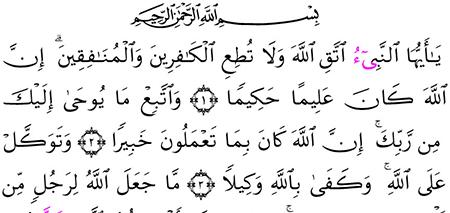 بِسْمِ اللَّهِ الرَّحْمَٰنِ الرَّحِيمِ
يَـٰٓأَيُّهَا النَّبِىٓءُ اتَّقِ اللَّهَ وَلَا تُطِعِ الْكَـٰفِرِينَ وَالْمُنَـٰفِقِينَۗ إِنَّ
اللَّهَ كَانَ عَلِيمًا حَكِيمًا ﴿١﴾ وَاتَّبِعْ مَا يُوحَىٰٓ إِلَيْكَ
مِن رَّبِّكَۚ إِنَّ اللَّهَ كَانَ بِمَا تَعْمَلُونَ خَبِيرًا ﴿٢﴾ وَتَوَكَّلْ
عَلَى اللَّهِۚ وَكَفَىٰ بِاللَّهِ وَكِيلًا ﴿٣﴾ مَّا جَعَلَ اللَّهُ لِرَجُلٍ مِّن